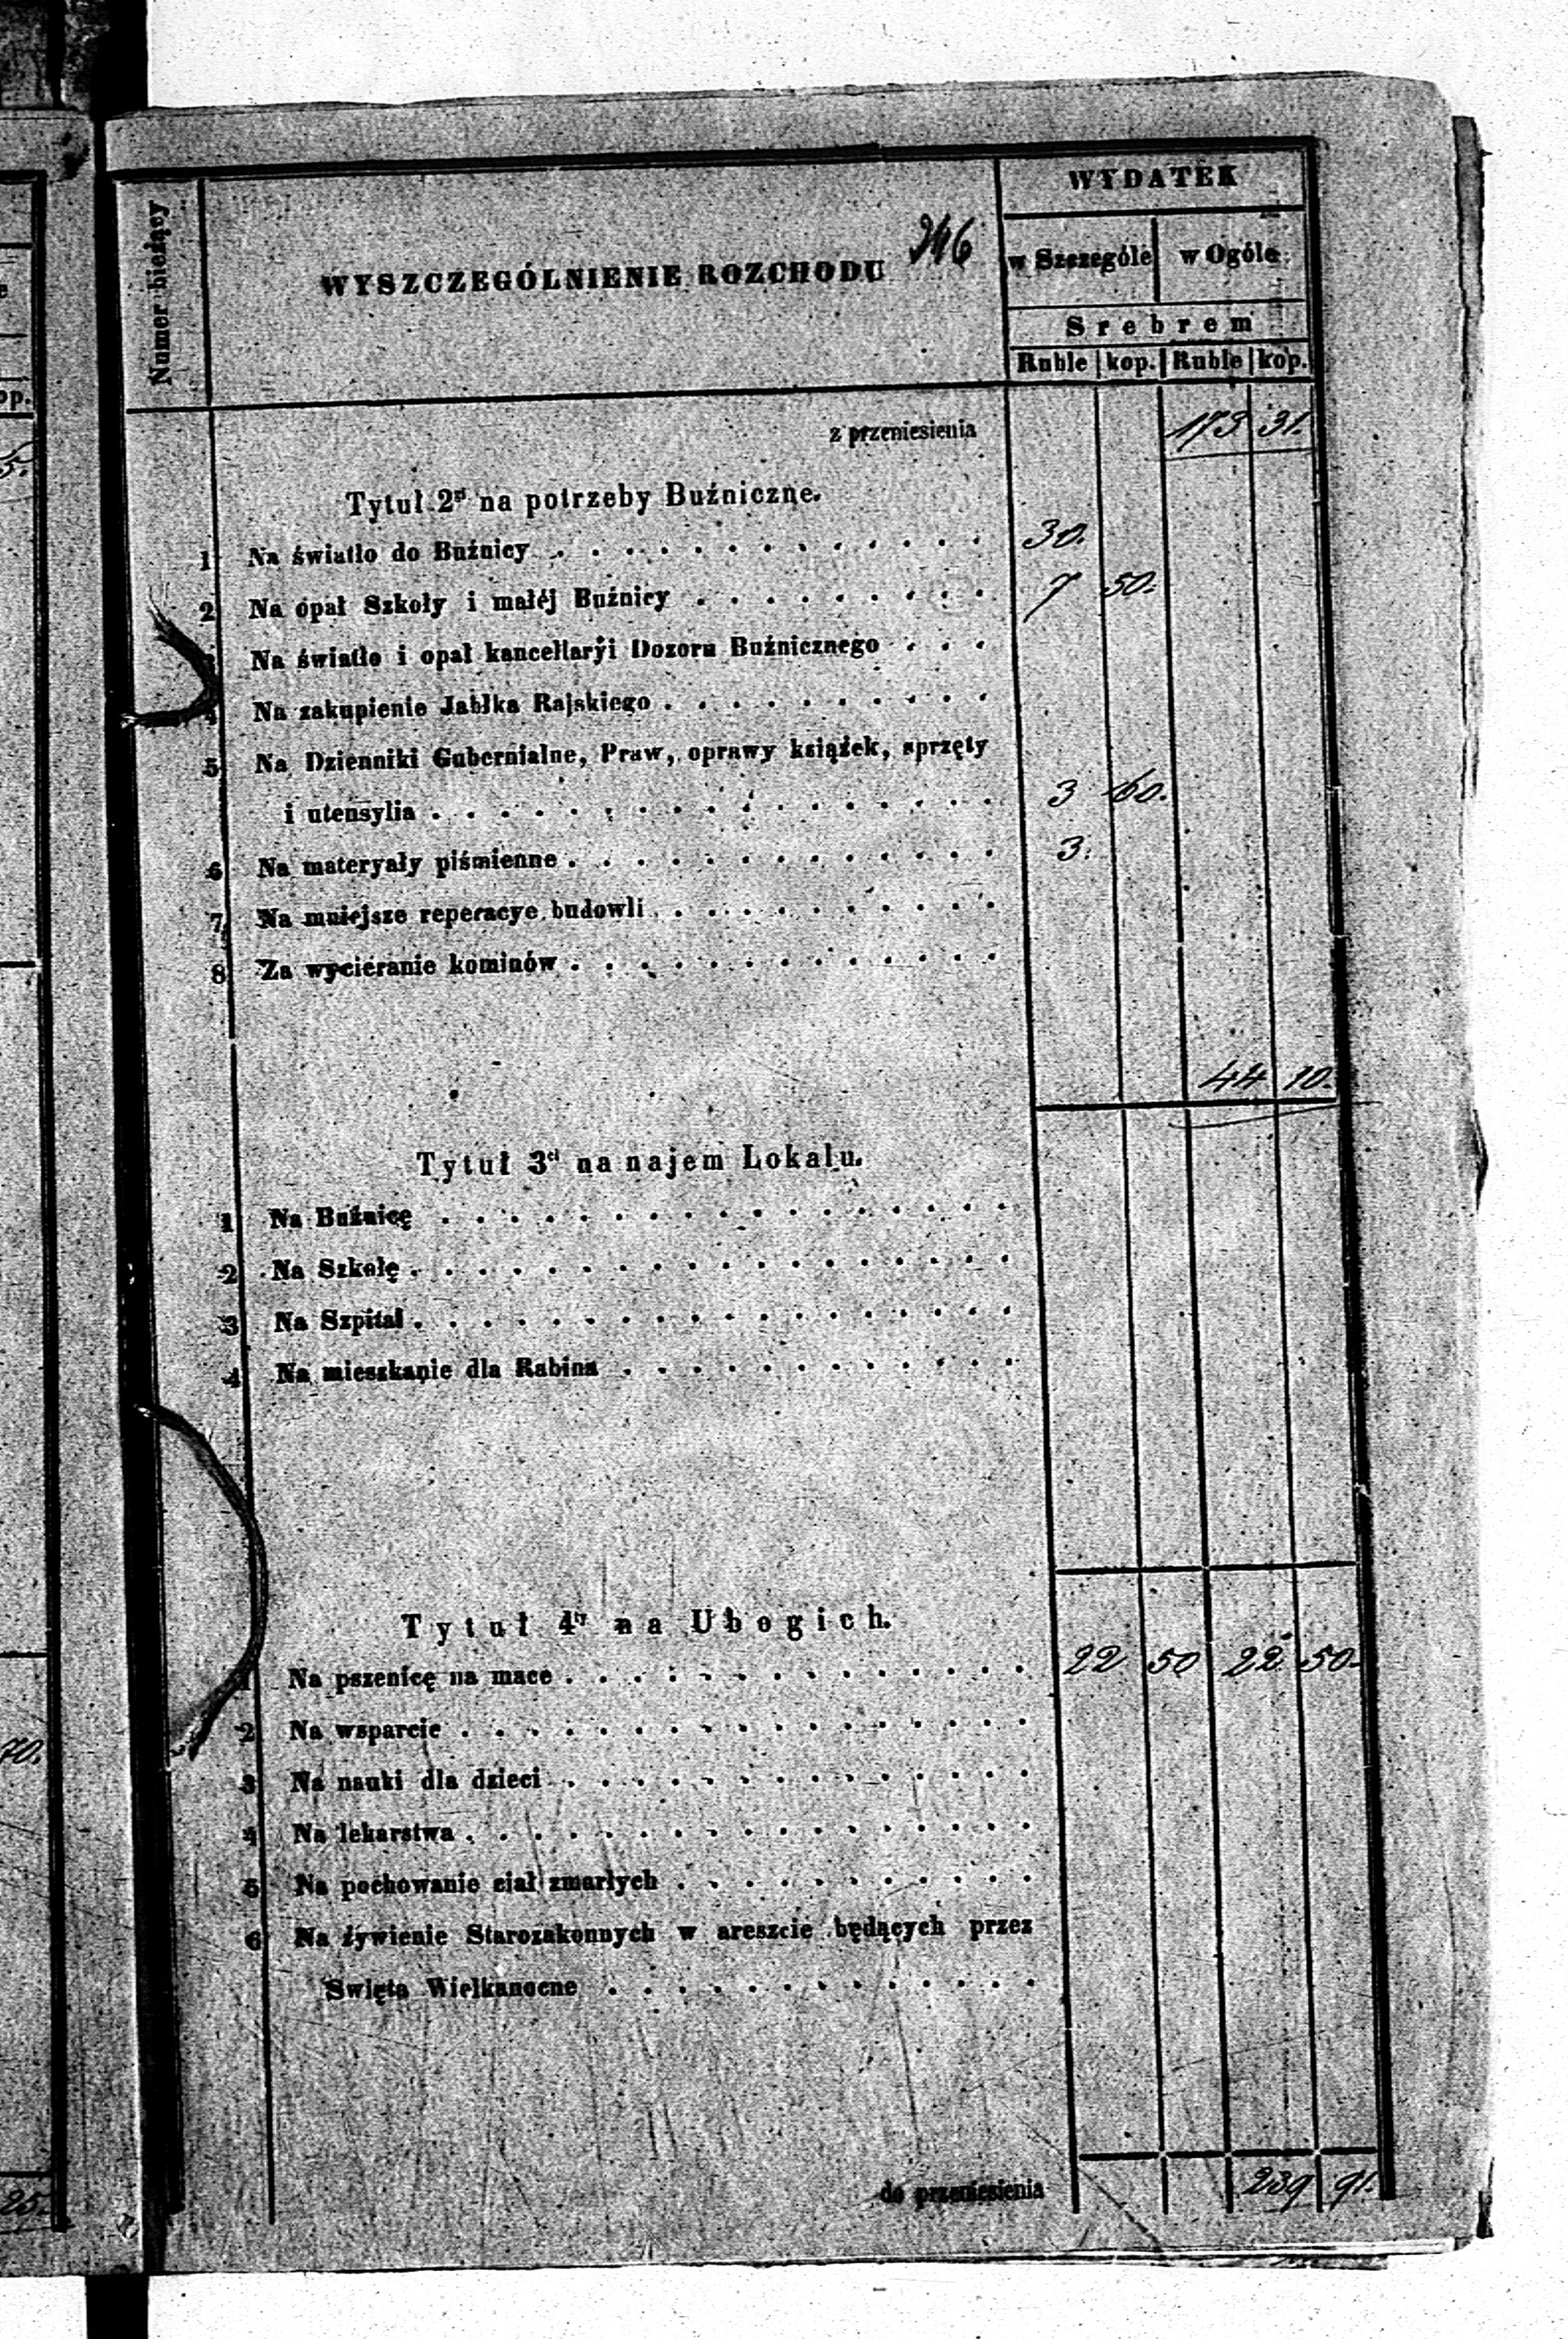 WYDATEK
Numer bieżący
WYSZCZEGÓLNIENIE ROZCHODU 246
w Szczególe w Ogóle
Srebrem
Ruble kop. Ruble kop.
z przeniesienia 173 31.
Tytuł 2gi na potrzeby Buźniczne.
1 Na światło do Buźnicy 30.
2 Na opał Szkoły i małéj Buźnicy 7 50.
3 Na światło i opał kancellaryi Dozoru Buźnicznego
4 Na zakupienie Jabłka Rajskiego
5 Na Dzienniki Gubernialne, Praw, oprawy książek, sprzęty
i utensylia 3 60.
6 Na materyały piśmienne 3.
7 Na mniejsze reperacye budowli
8 Za wycieranie kominów
44 10.
Tytuł 3ci na najem Lokalu.
1 Na Buźnicę
2 Na Szkołę
3 Na Szpital
4 Na mieszkanie dla Rabina
Tytuł 4ty na Ubogich.
1 Na pszenicę na mace 22 50 22 50.
2 Na wsparcie
3 Na nauki dla dzieci
4 Na lekarstwa
5 Na pochowanie ciał zmarłych
6 Na żywienie Starozakonnych w areszcie będących przez
Swięta Wielkanocne
do przeniesienia 239 91.
op.
5.
70.
25.